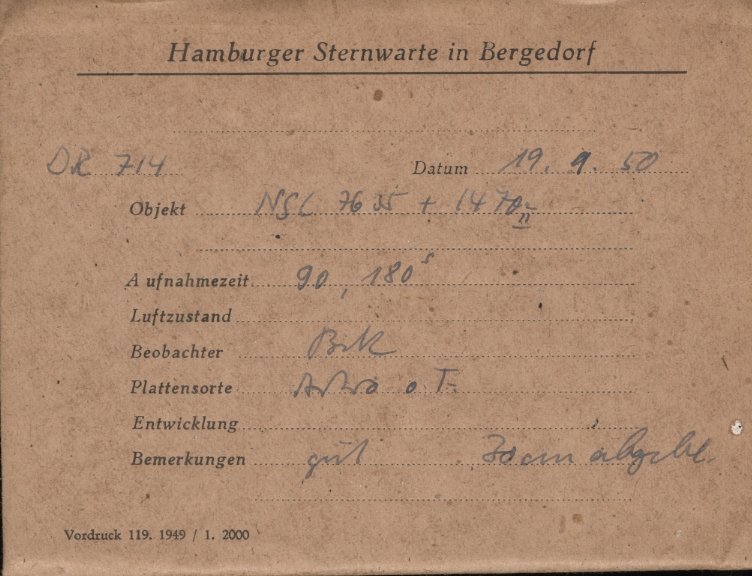 Hamburger Sternwarte in Bergedorf
DR 714 Datum 19. 9. 50
Objekt 7635 + 1470
Aufnahmezeit 90, 180s
Luftzustand
Beobachter
Plattensorte Astro o T.
Entwicklung
Bemerkungen gut 30 cm abgebl.
Vordruck 119. 1949 / 1. 2000